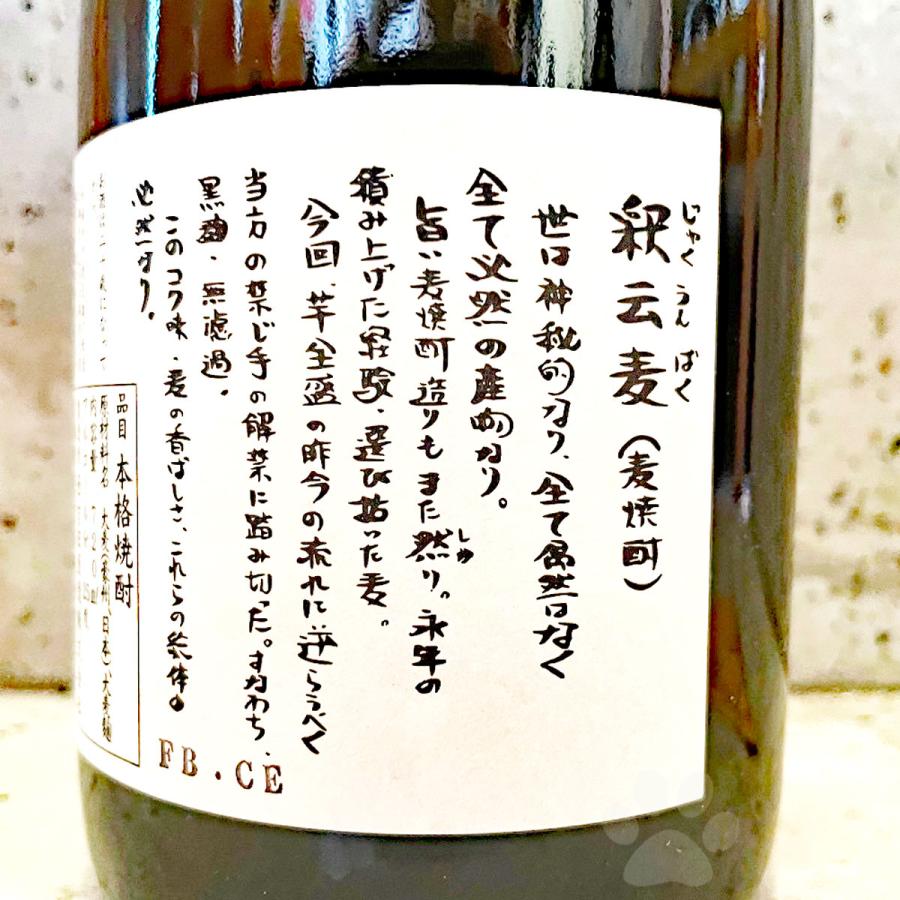 釈云麦（麦焼酎）
じゃくうんばく
世は神秘的なり、全て偶然はなく
全て必然の産物なり。
旨い麦焼酎造りもまた然り。永年の
しか
積み上げた経験、選び抜いた麦。
今回、芋全盛の昨今の流れに逆らうべく
当方の禁じ手の解禁に踏み切った。すなわち、
黒麹、無濾過。
このコク味、麦の香ばしさ、これらの総体の
必然なり。
FB.CE
品目 本格焼酎
原材料名 大麦(豪州、日本)、大麦麹
内容量 720ml